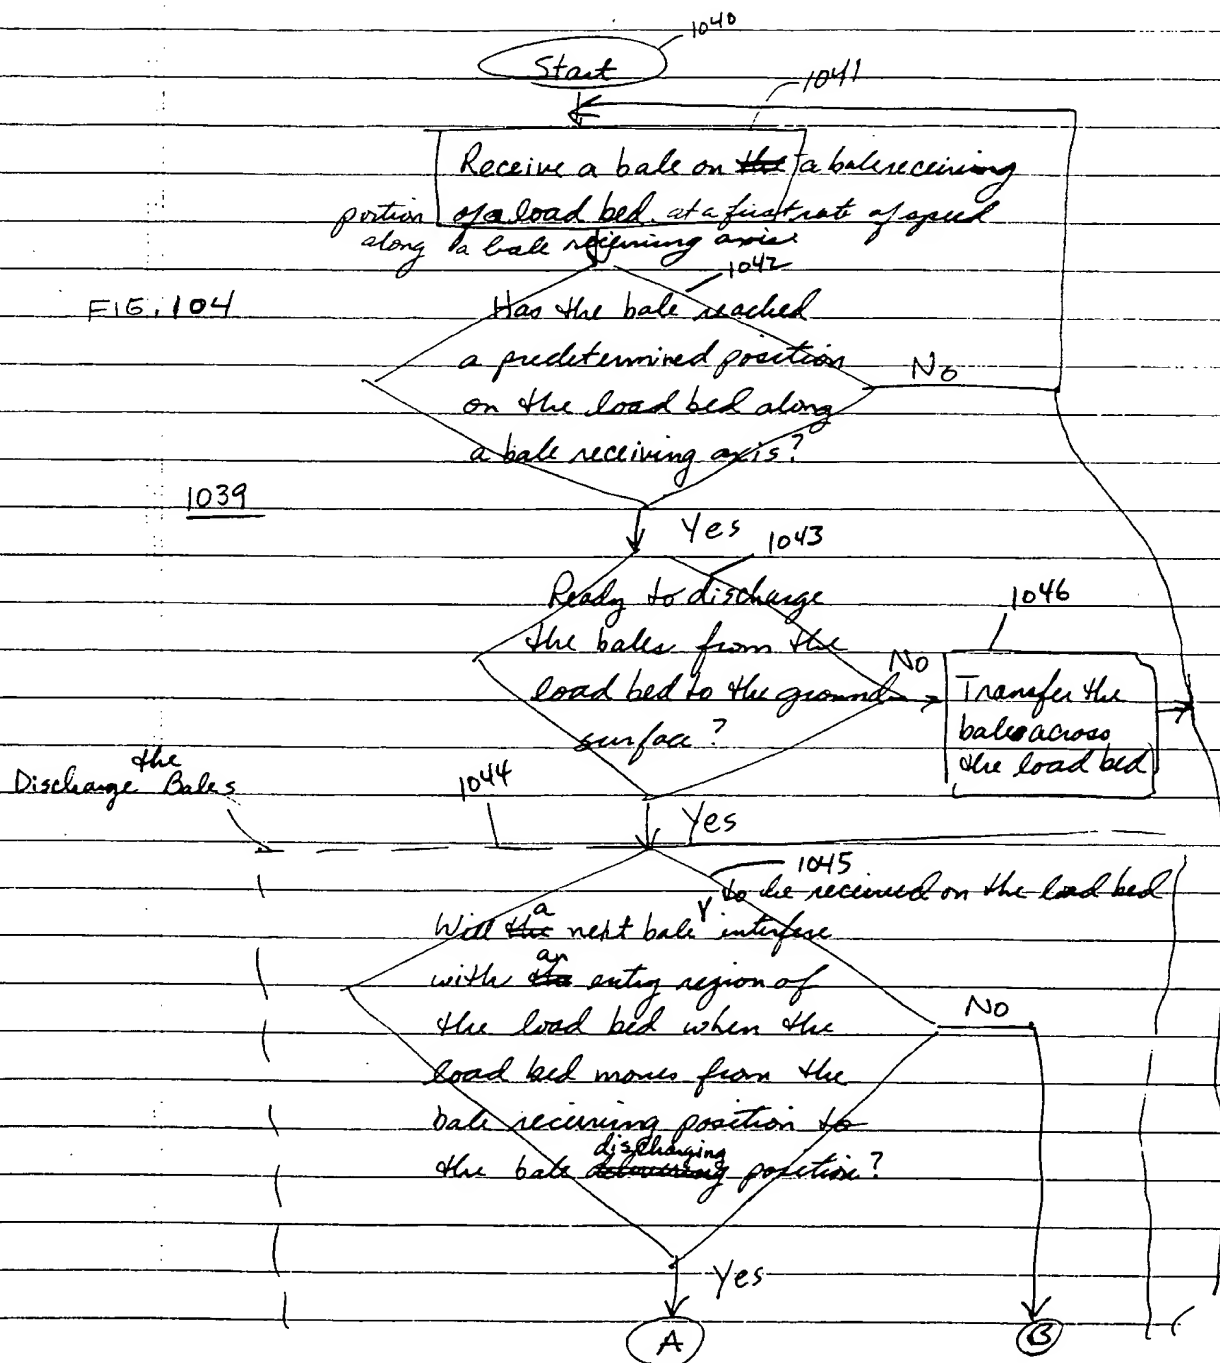 1040
Start
1041
Receive a bale on the a bale receiving
portion of a load bed at a first rate of speed
along a bale receiving axis
1042
FIG. 104
Has the bale reached
a predetermined position
on the load bed along
a bale receiving axis?
No
1039
Yes
1043
Ready to discharge
the bales from the
load bed to the ground
surface?
No
1046
Transfer the
bales across
the load bed
the
Discharge Bales
1044
Yes
1045
to be received on the load bed
a
Will the next bale interfere
an
with the entry region of
the load bed when the
load bed moves from the
bale receiving position to
discharging
the bale position?
No
Yes
A
B